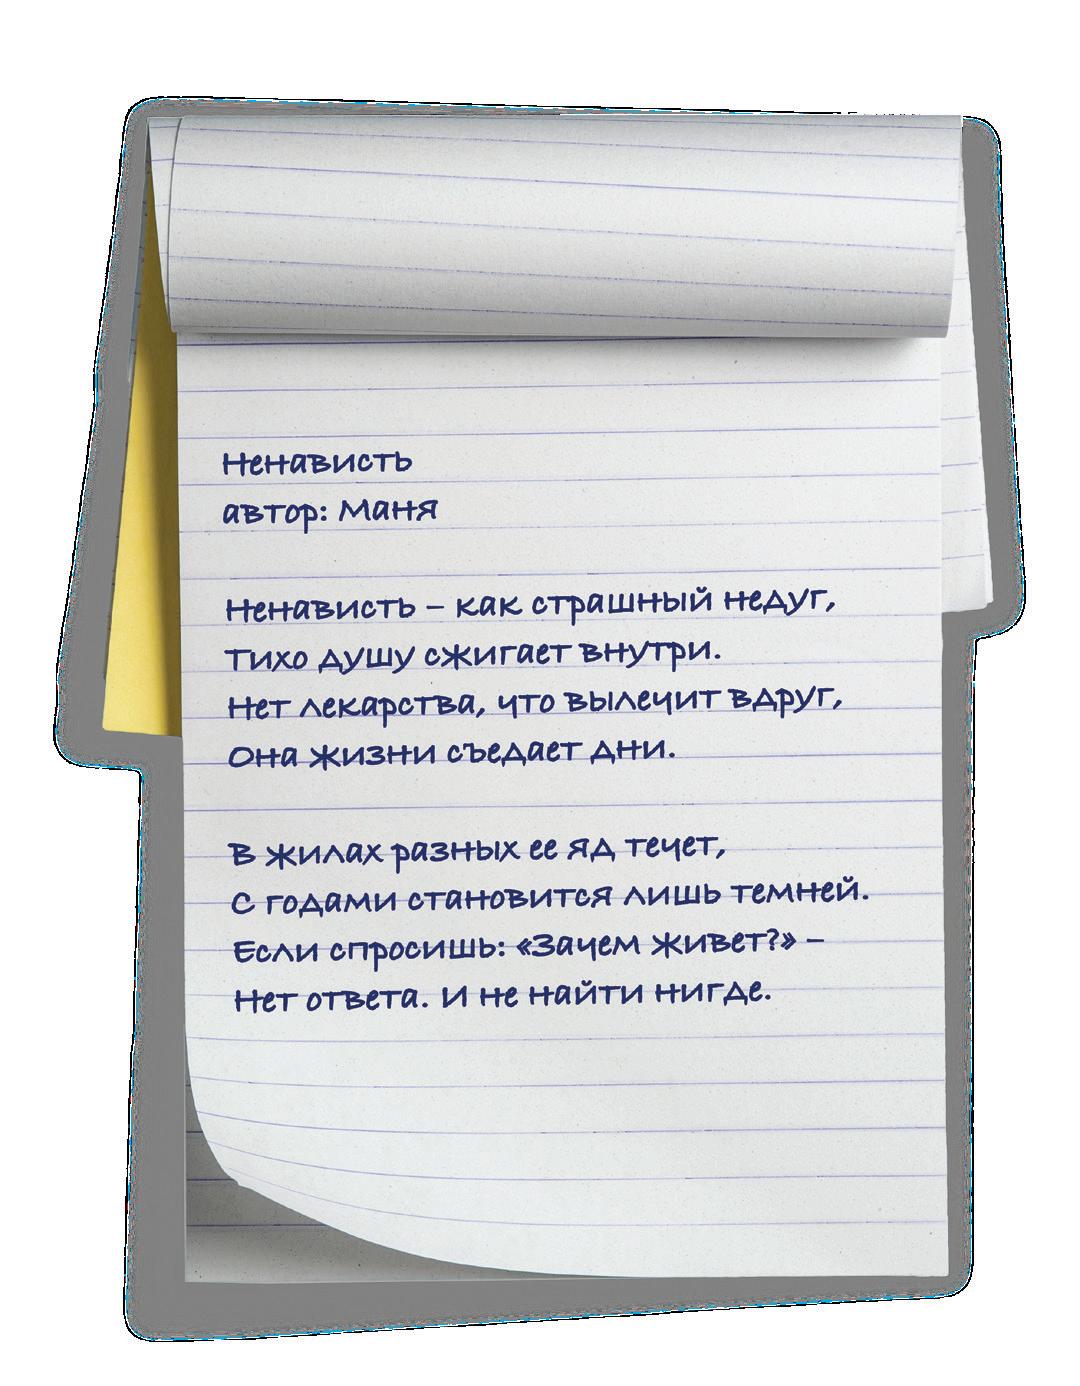 Ненависть
автор: Маня
Ненависть – как страшный недуг,
Тихо душу сжигает внутри.
Нет лекарства, что вылечит вдруг,
Она жизни съедает дни.
В жилах разных ее яд течет,
С годами становится лишь темней.
Если спросишь: «Зачем живет?» –
Нет ответа. И не найти нигде.